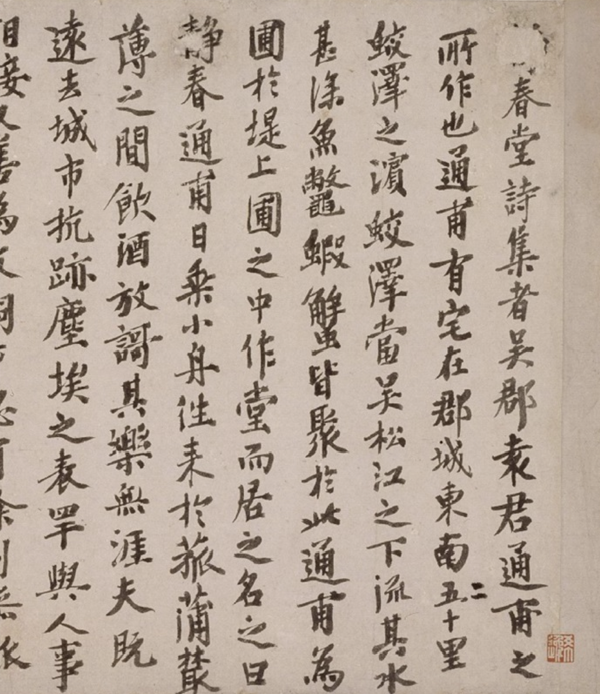 春堂詩集者吳郡袁君通甫之
所作也通甫有宅在郡城東南五十里
蛟澤之濱蛟澤當吳松江之下流其水
甚深魚鼈蝦蟹皆聚於此通甫為
圃於堤上圃之中作堂而居之名之曰
靜春通甫日乘小舟往來於菰蒲叢
薄之間飲酒放謌其樂無涯夫既
遠去城市抗跡塵埃之表罕與人事
相接又善為文詞